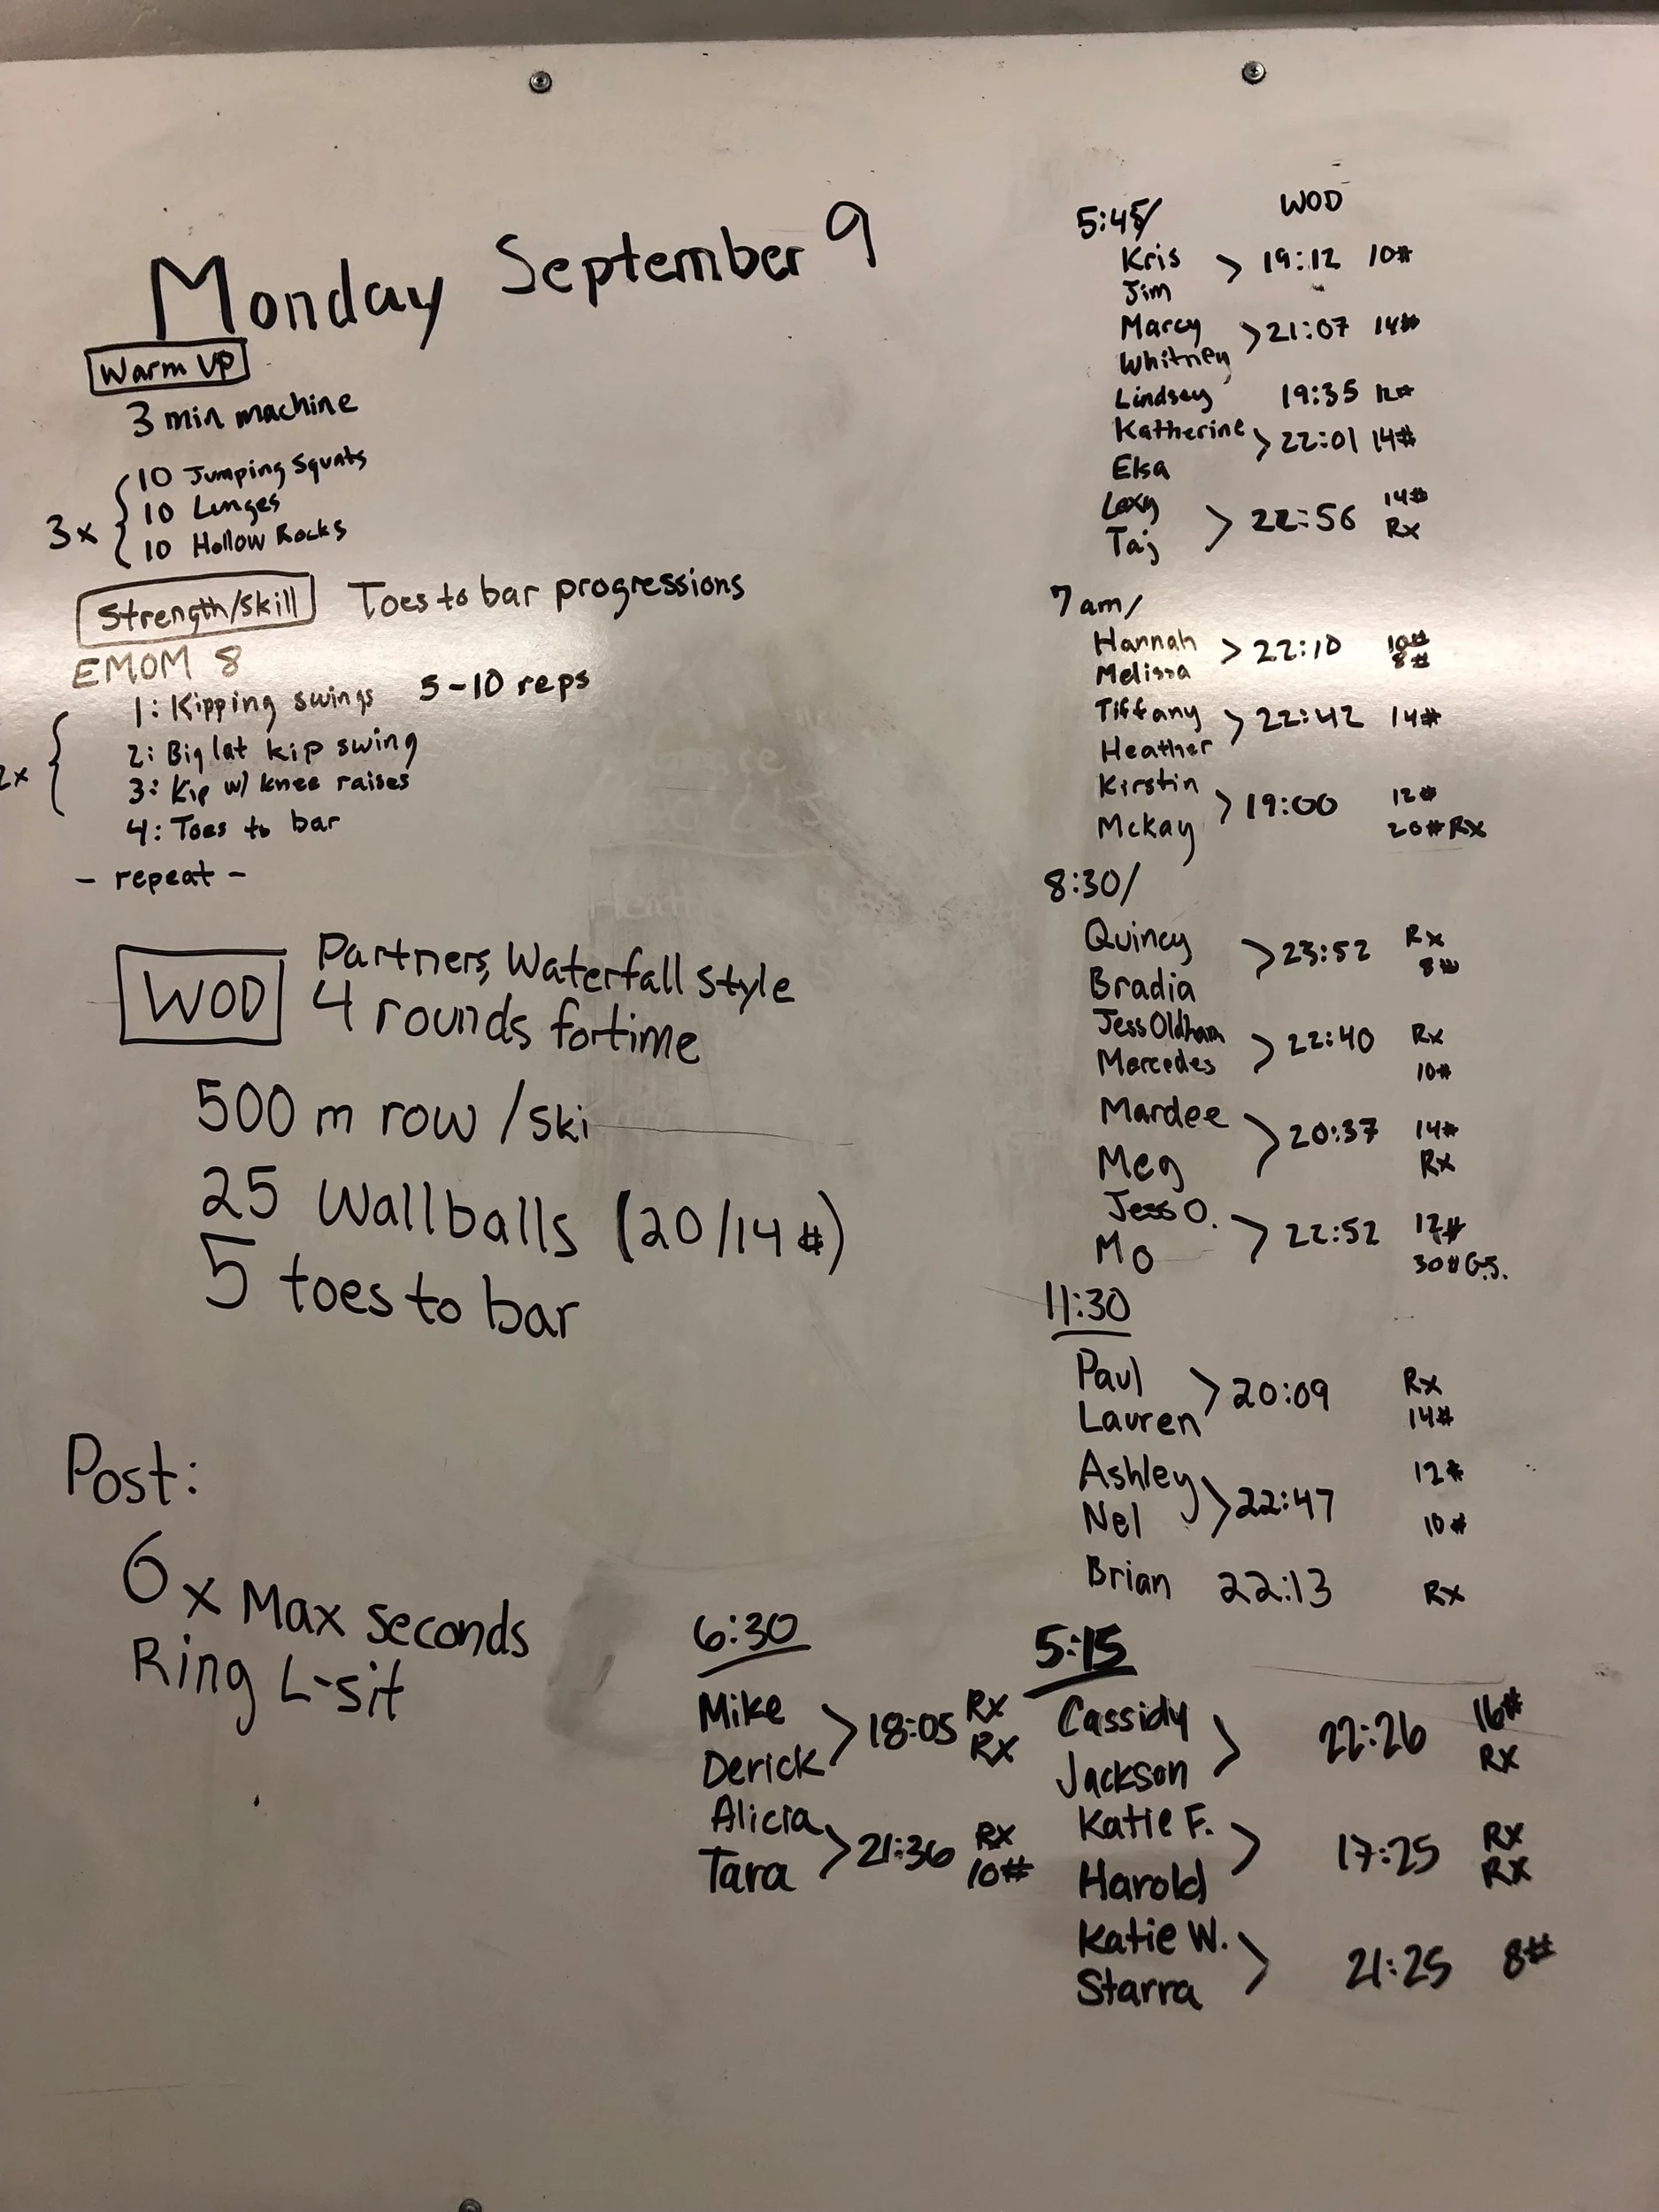 Monday September 9
Warm Up
3 min machine
3x
10 Jumping Squats
10 Lunges
10 Hollow Rocks
Strength/Skill Toes to bar progressions
EMOM 8
1: Kipping swings 5-10 reps
2x
2: Big lat kip swing
3: Kip w/ knee raises
4: Toes to bar
- repeat -
WOD Partners, Waterfall Style
4 rounds for time
500 m row / ski
25 Wallballs (20/14#)
5 toes to bar
Post:
6x Max seconds
Ring L-sit
5:45/ WOD
Kris > 19:12 10#
Jim
Marcy > 21:07 14#
Whitney
Lindsey 19:35 12#
Katherine > 22:01 14#
Elsa
Lexy > 22:56 14#
Taj Rx
7am/
Hannah > 22:10 10#
Melissa 8#
Tiffany > 22:42 14#
Heather
Kirstin > 19:00 12#
Mckay 20# Rx
8:30/
Quincy > 23:52 Rx
Bradia 8#
Jess Oldham > 22:40 Rx
Mercedes 10#
Mardee > 20:37 14#
Meg Rx
Jess O. > 22:52 12#
Mo 30# G.S.
11:30
Paul > 20:09 Rx
Lauren 14#
Ashley > 22:47 12#
Nel 10#
Brian 22:13 Rx
6:30
Mike > 18:05 Rx
Derick Rx
Alicia > 21:36 Rx
Tara 10#
5:15
Cassidy > 22:26 16#
Jackson Rx
Katie F. > 17:25 Rx
Harold Rx
Katie W. > 21:25 8#
Starra